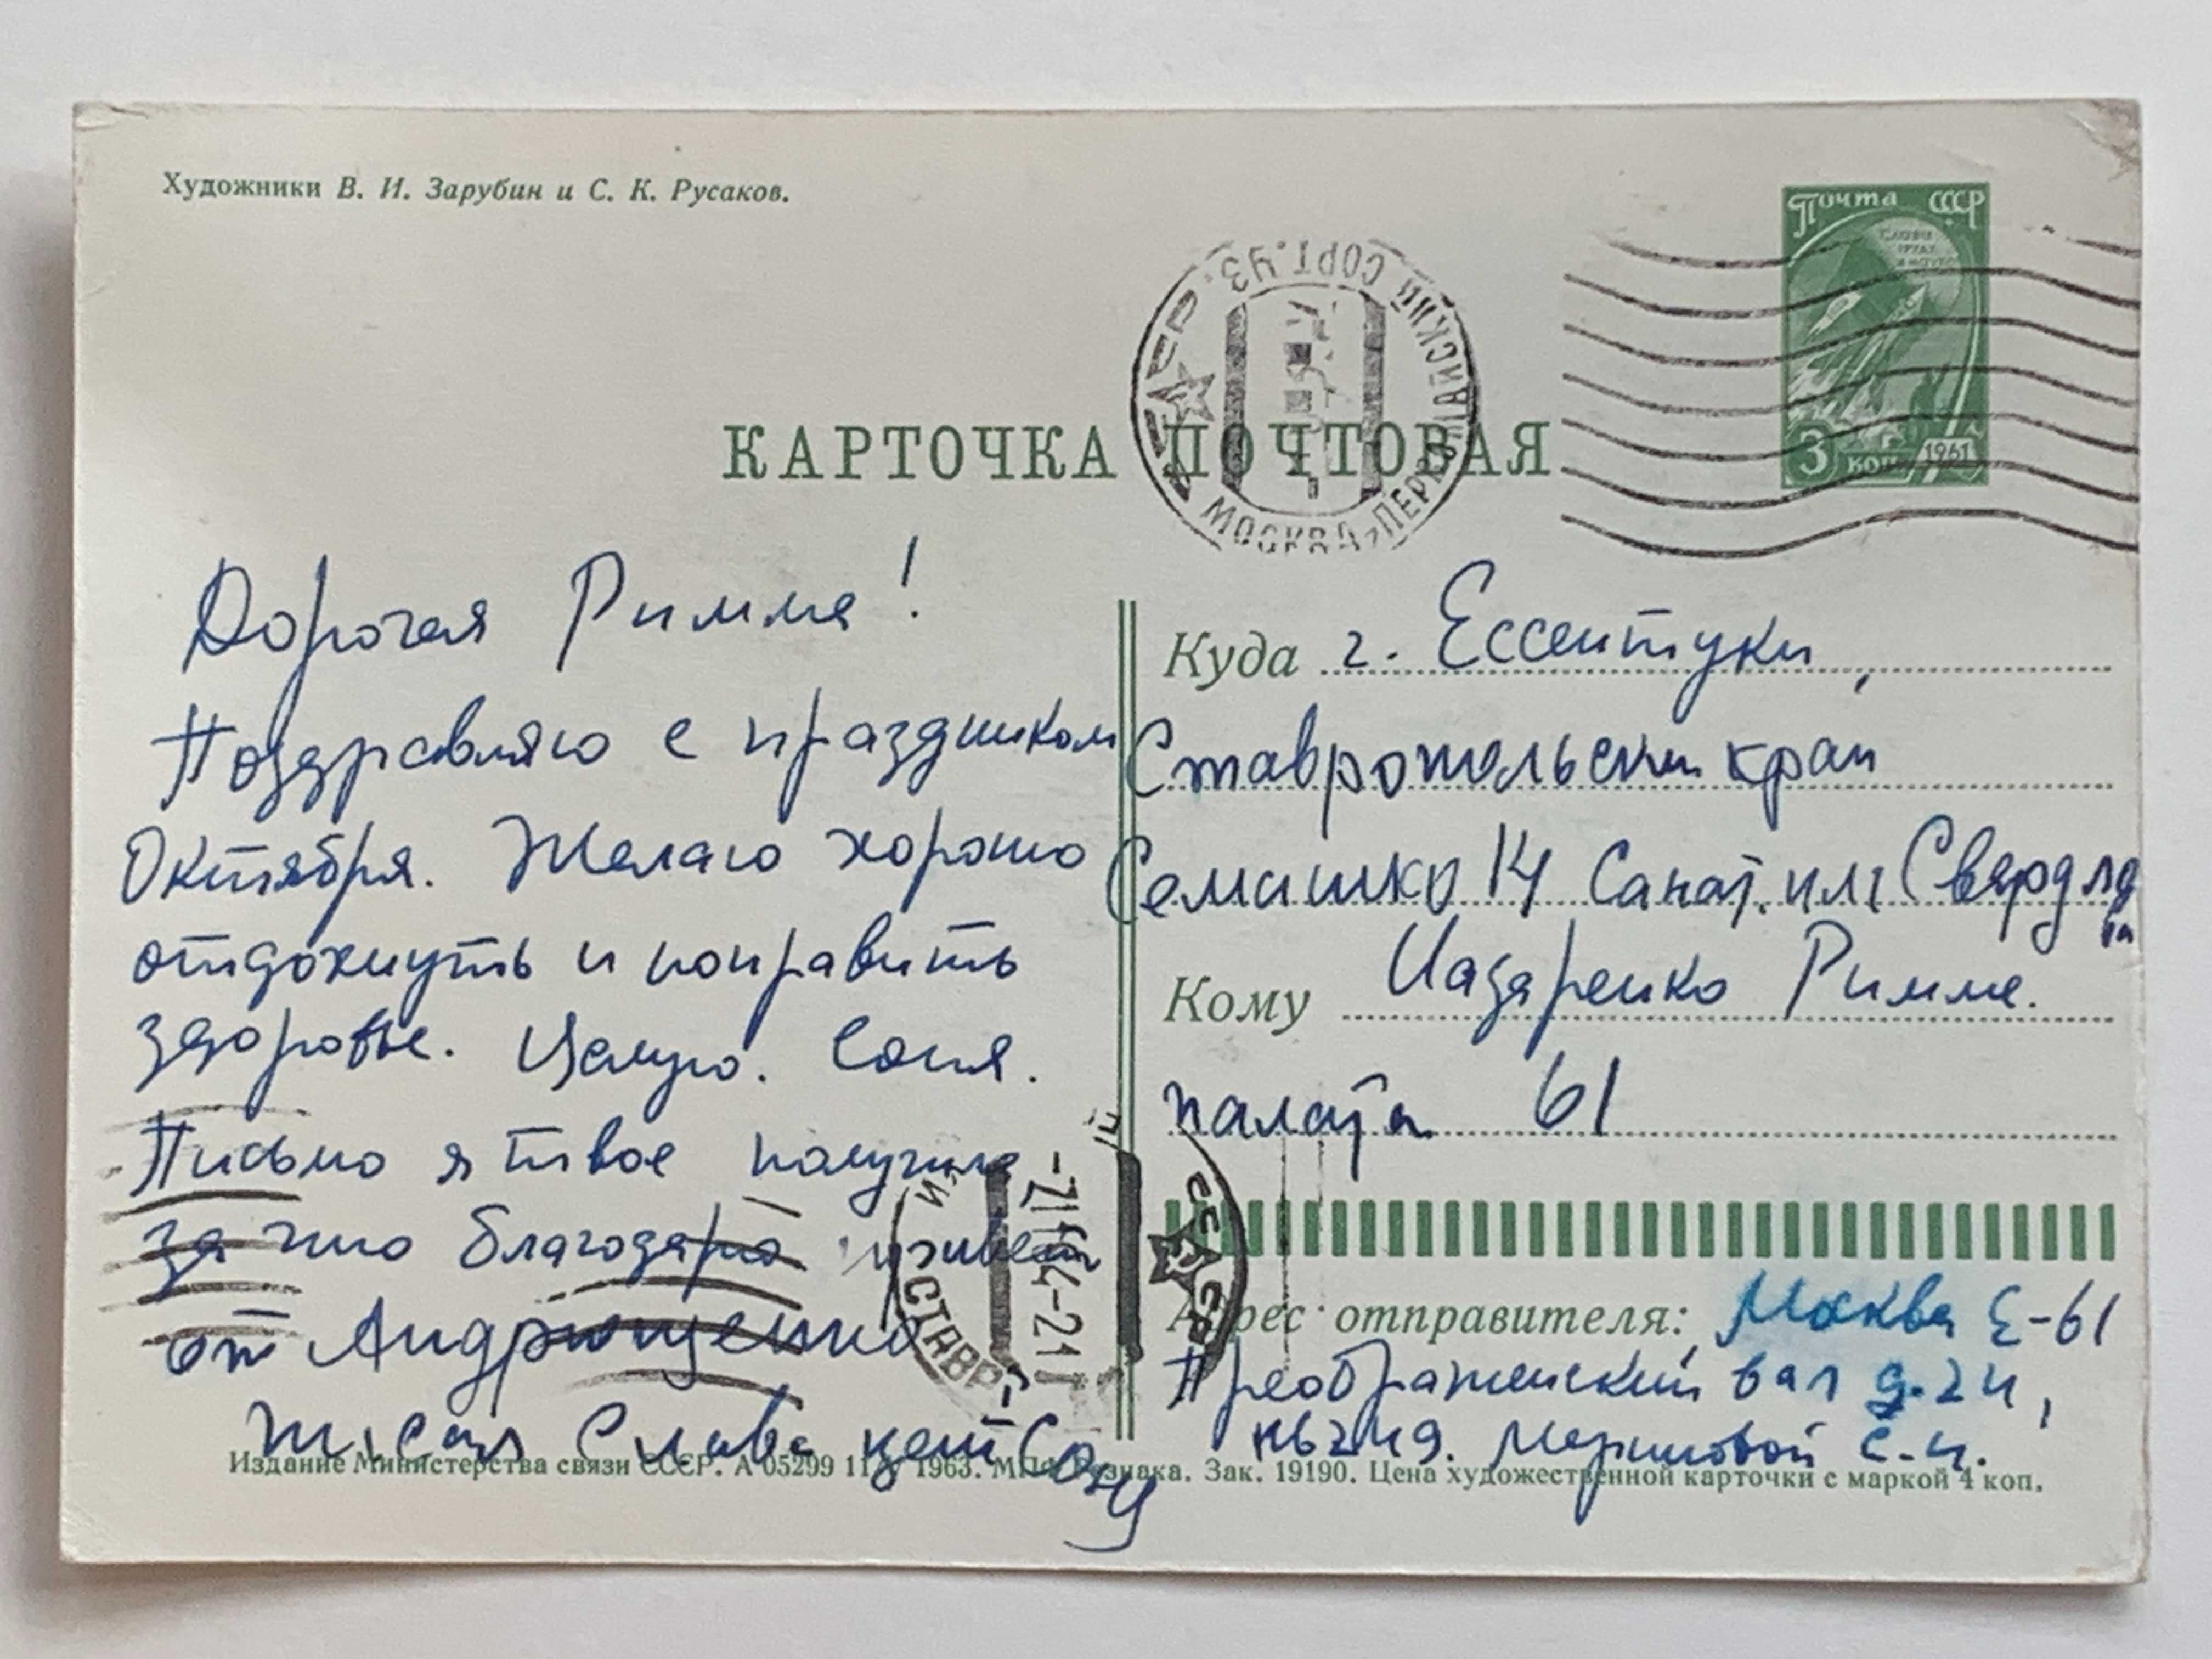 Художники В. И. Зарубин и С. К. Русаков.
Почта СССР
3 коп. 1961
КАРТОЧКА ПОЧТОВАЯ
МОСКВА-ПЕРВОМАЙСКИЙ СОРТ. УЗ
СССР
Дорогая Римма!
Поздравляю с праздником
Октября. Желаю хорошо
отдохнуть и поправить
здоровье. Целую. Соня.
Письмо я твое получила
за что благодарю привет
от Андрющенко
Слава
Куда г. Ессентуки,
Ставропольский край
Семашко 14 Санат. им Свердлова
Кому Назаренко Римме.
палата 61
СТАВР
СССР
Адрес отправителя: Москва Е-61
Преображенский вал д. 24,
Издание Министерства связи СССР. А 05299 1963. МПФ Гознака. Зак. 19190. Цена художественной карточки с маркой 4 коп.